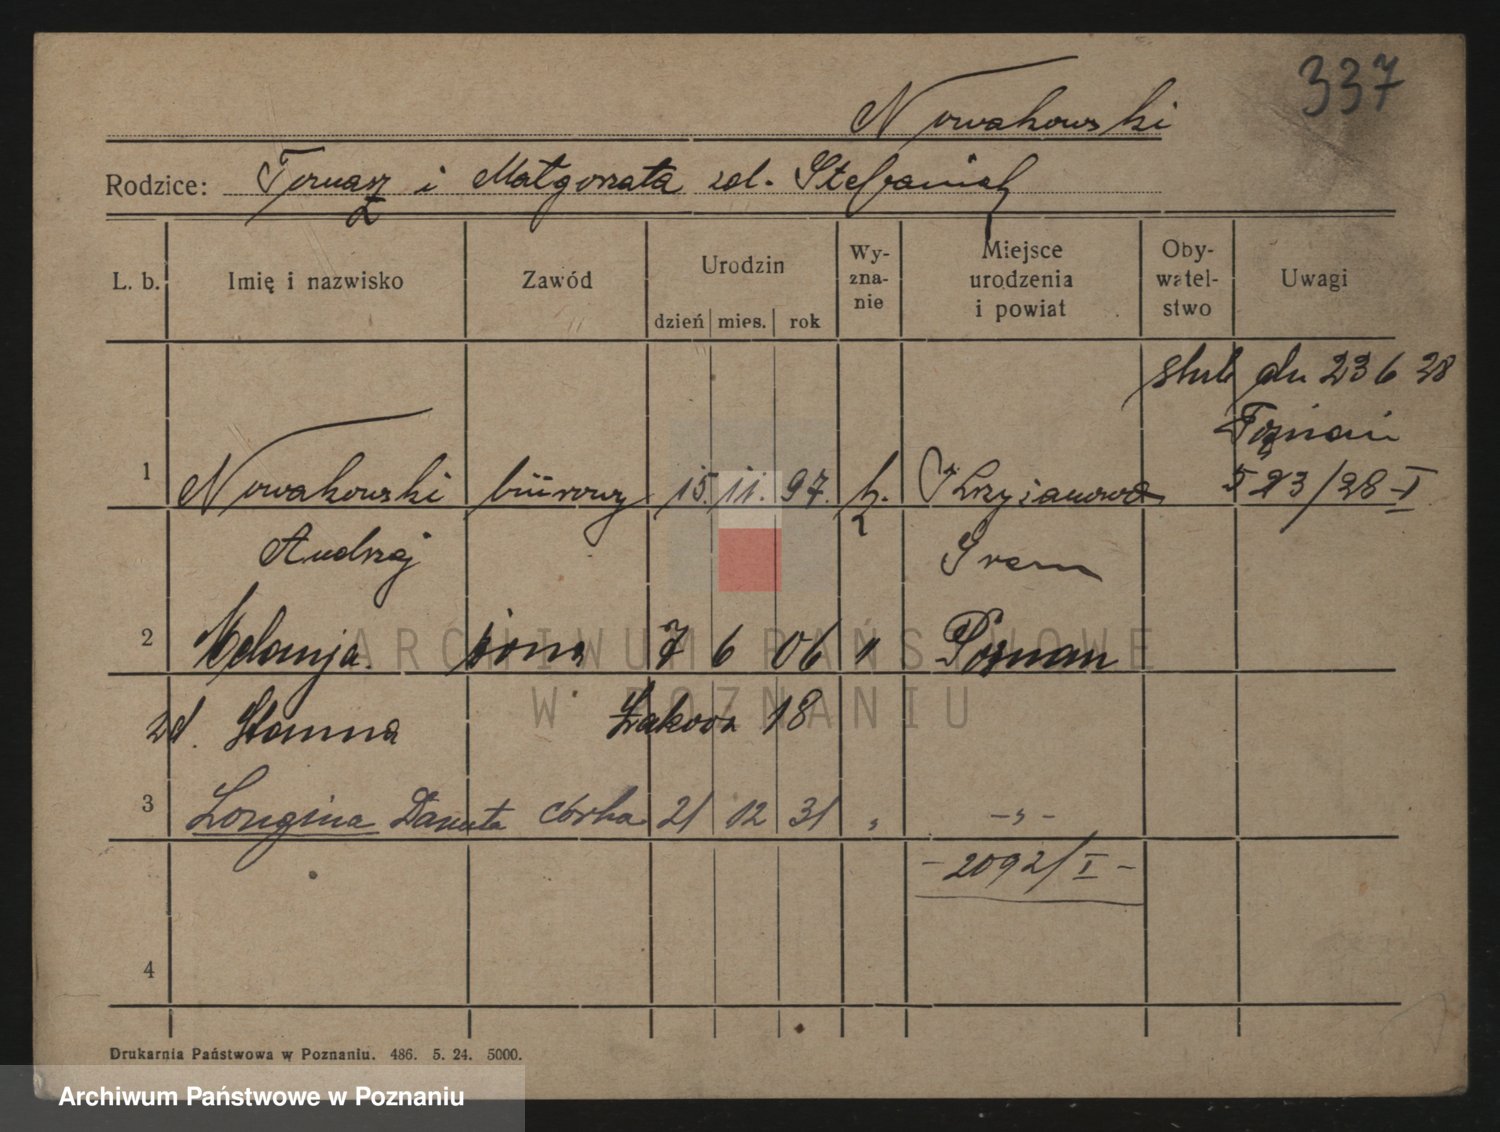 337
Nowakowski
Rodzice: Tomasz i Małgorzata zd. Stefaniak
L. b. Imię i nazwisko Zawód Urodzin dzień mies. rok Wyznanie Miejsce urodzenia i powiat Obywatelstwo Uwagi
ślub dn 23 6 28
Poznań
1 Nowakowski biurowy 15. 11. 97. k. Krzyżanowo 523/28-I
Andrzej Śrem
2 Melanja żona 7 6 06 " Poznań
zd. Stanna 18
3 Longina Danuta córka 21 12 31 " - " -
- 2092/I -
4
Drukarnia Państwowa w Poznaniu. 486. 5. 24. 5000.
ARCHIWUM PAŃSTWOWE
W POZNANIU
Archiwum Państwowe w Poznaniu